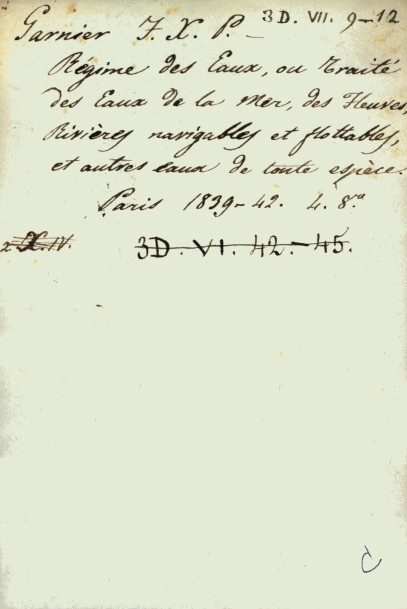 Garnier F. X. P. — 3D. VII. 9-12
Régime des Eaux, ou Traité
des Eaux de la Mer, des Fleuves,
Rivières navigables et flottables,
et autres eaux de toute espèce.
Paris 1839-42. 4. 8.º
X. IV. 3D. VI. 42-45.
C